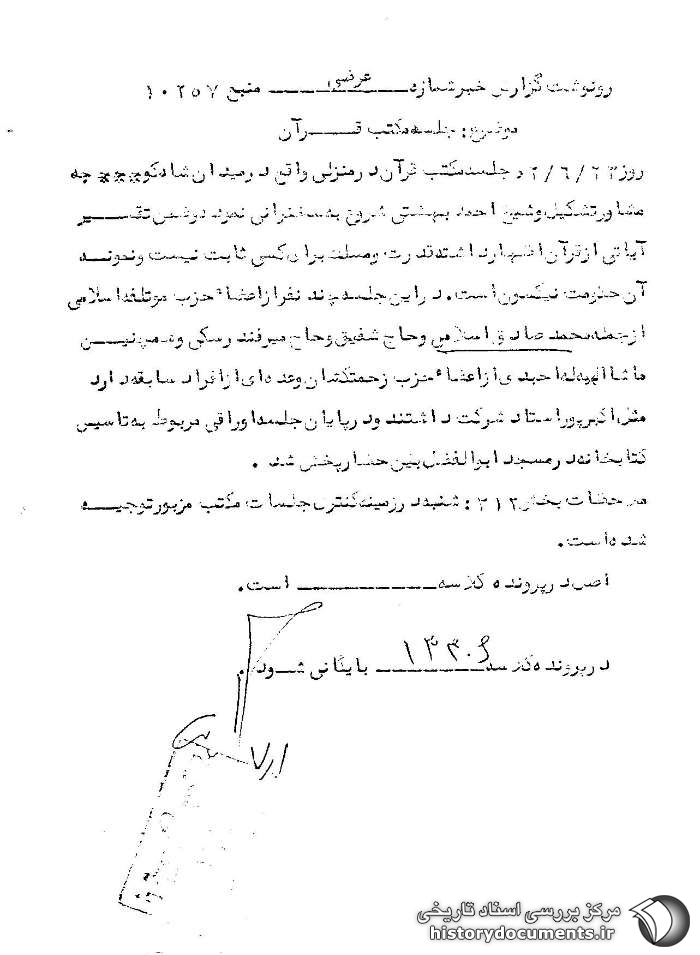 رونوشت گزارش خبر شماره عرضی منبع ۱۰۲۵۷
موضوع: جلسه مکتب قـــرآن
روز ۲/۶/۲۳ جلسه مکتب قرآن در منزلی واقع در میدان شاه کوچه چه
مشاور تشکیل و شیخ احمد بهشتی شروع به سخنرانی نمود و ضمن تفسیر
آیاتی از قرآن اظهار داشت قدرت و سلطنت برای کسی ثابت نیست و نمونه
آن حکومت نیکسون است. در این جلسه چند نفر از اعضاء حزب موتلفه اسلامی
از جمله محمد صادق اسلامی و حاج شفیق و حاج میرفندرسکی و همچنین
ماشااله احمدی از اعضاء حزب زحمتکشان وعده ای از افراد سابقه دار
مثل اکبر پور استاد شرکت داشتند و در پایان جلسه اوراقی مربوط به تاسیس
کتابخانه در مسجد ابوالفضل بین حضار پخش شد .
ملاحظات بخش ۳۱۲: شنبه در زمینه کنترل جلسات مکتب مزبور توجیه
شده است.
اصل در پرونده کلاسه است.
در پرونده کلاسه بایگانی شود.
مرکز بررسی اسناد تاریخی
historydocuments.ir